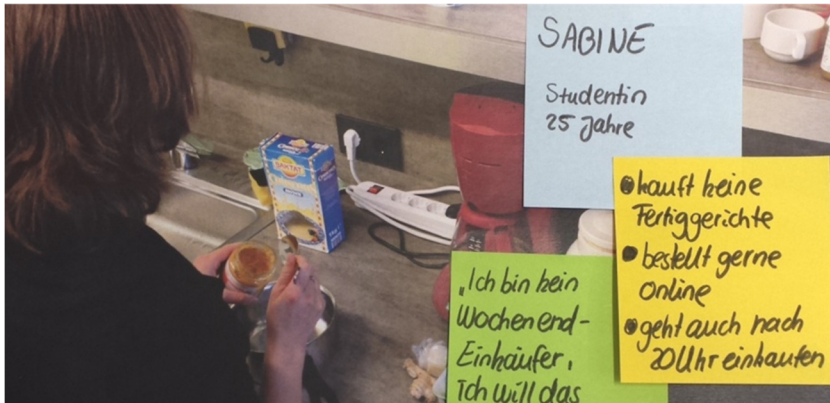 SABINE
Studentin
25 Jahre
kauft keine
Fertiggerichte
bestellt gerne
online
geht auch nach
20 Uhr einkaufen
"Ich bin kein
Wochenend-
Einkäufer,
ich will das
BAKTAT